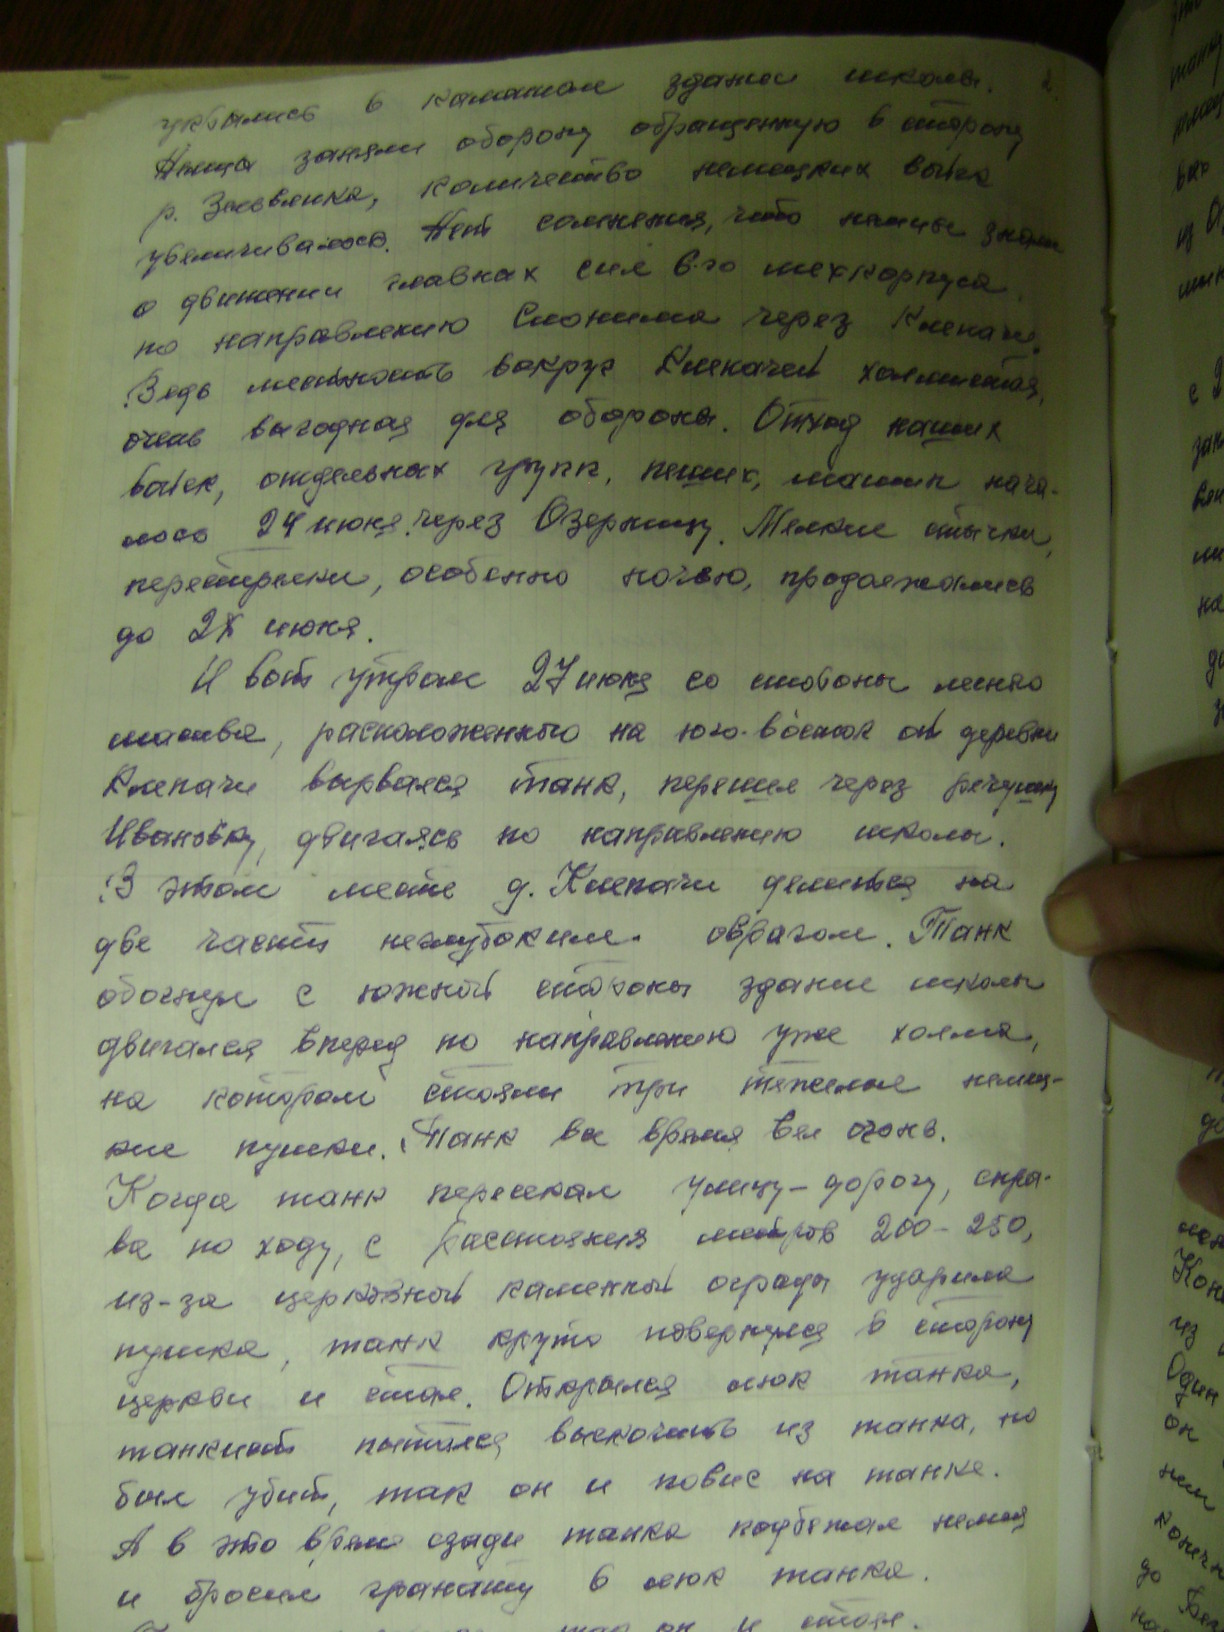 укрылись в каменном здании школы. 2.
Немцы заняли оборону обращенную в сторону
р. Зельвянка, количество немецких войск
увеличивалось. Нет сомнения, что немцы знали
о движении главных сил 6-го мехкорпуса
по направлению Слонима через Клепачи.
Ведь местность вокруг Клепачей холмистая,
очень выгодная для обороны. Отход наших
войск, отдельных групп, пеших, машин нача-
лось 24 июня через Озерницу. Мелкие стычки,
перестрелки, особенно ночью, продолжались
до июня.
И вот утром 27 июня со стороны лесного
массива, расположенного на юго-восток от деревни
Клепачи вырвался танк, перешел через речушку
Ивановку, двигаясь по направлению школы.
В этом месте д. Клепачи делится на
две части неглубоким оврагом. Танк
обогнул с южной стороны здание школы
двигался вперед по направлению уже холма,
на котором стояли три тяжелые немец-
кие пушки. Танк все время вел огонь.
Когда танк пересекал улицу-дорогу, спра-
ва по ходу, с расстояния метров 200-250,
из-за церковной каменной ограды ударила
пушка, танк круто повернулся в сторону
церкви и стал. Открылся люк танка,
танкист пытался выскочить из танка, но
был убит, так он и повис на танке.
А в это время сзади танка подбежал немец
и бросил гранату в люк танка.
он и стоял.